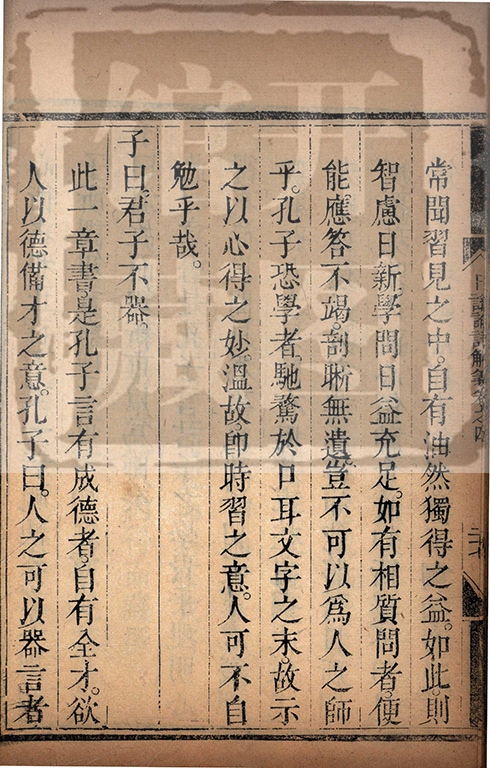 常聞習見之中。自有油然獨得之益。如此。則
智慮日新。學問日益充足。如有相質問者。便
能應答不竭。剖晰無遺。豈不可以爲人之師
乎。孔子恐學者。馳騖於口耳文字之末。故示
之以心得之妙。溫故。卽時習之意。人可不自
勉乎哉。
子曰。君子不器。
此一章書。是孔子言有成德者。自有全才。欲
人以德備才之意。孔子曰。人之可以器言者